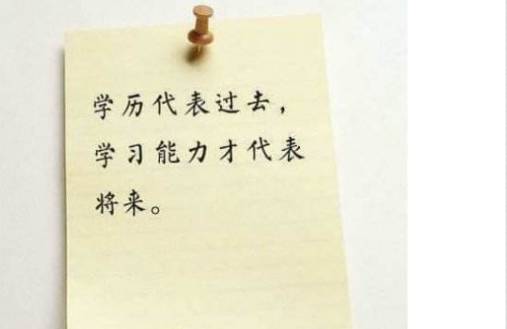 学历代表过去，
学习能力才代表
将来。